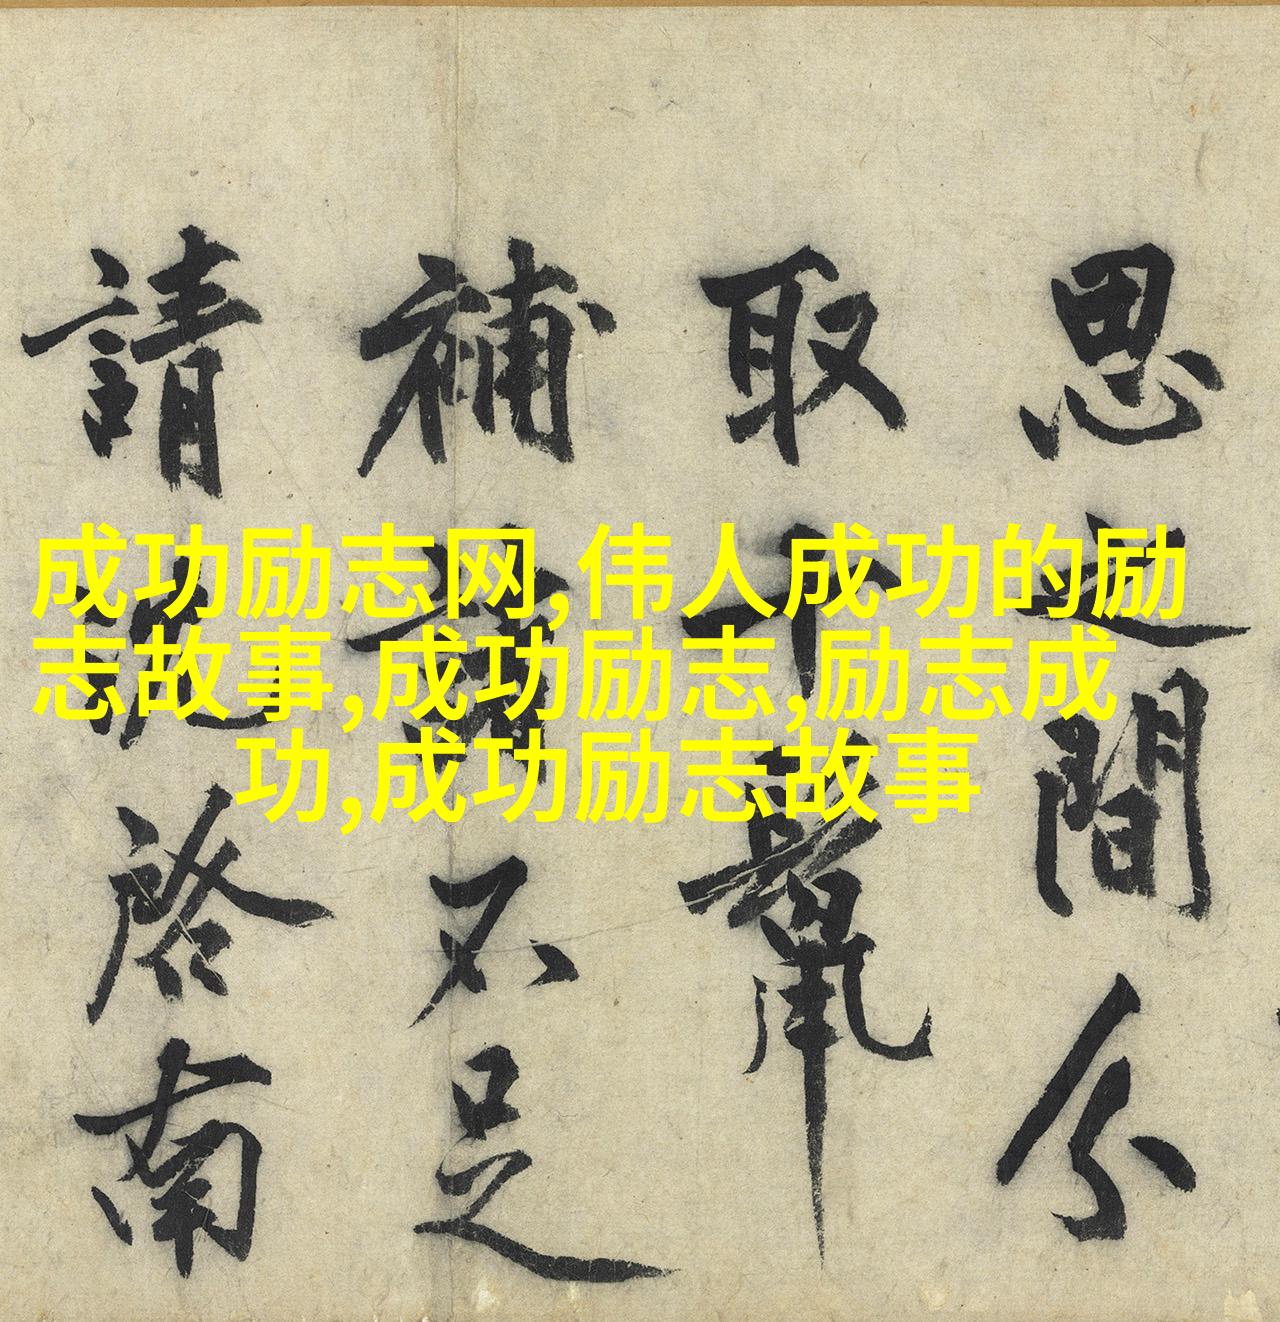 思之間分
取十鬣
補諸不足
請沈啓南
成功励志网,伟人成功的励
志故事,成功励志,励志成
功,成功励志故事